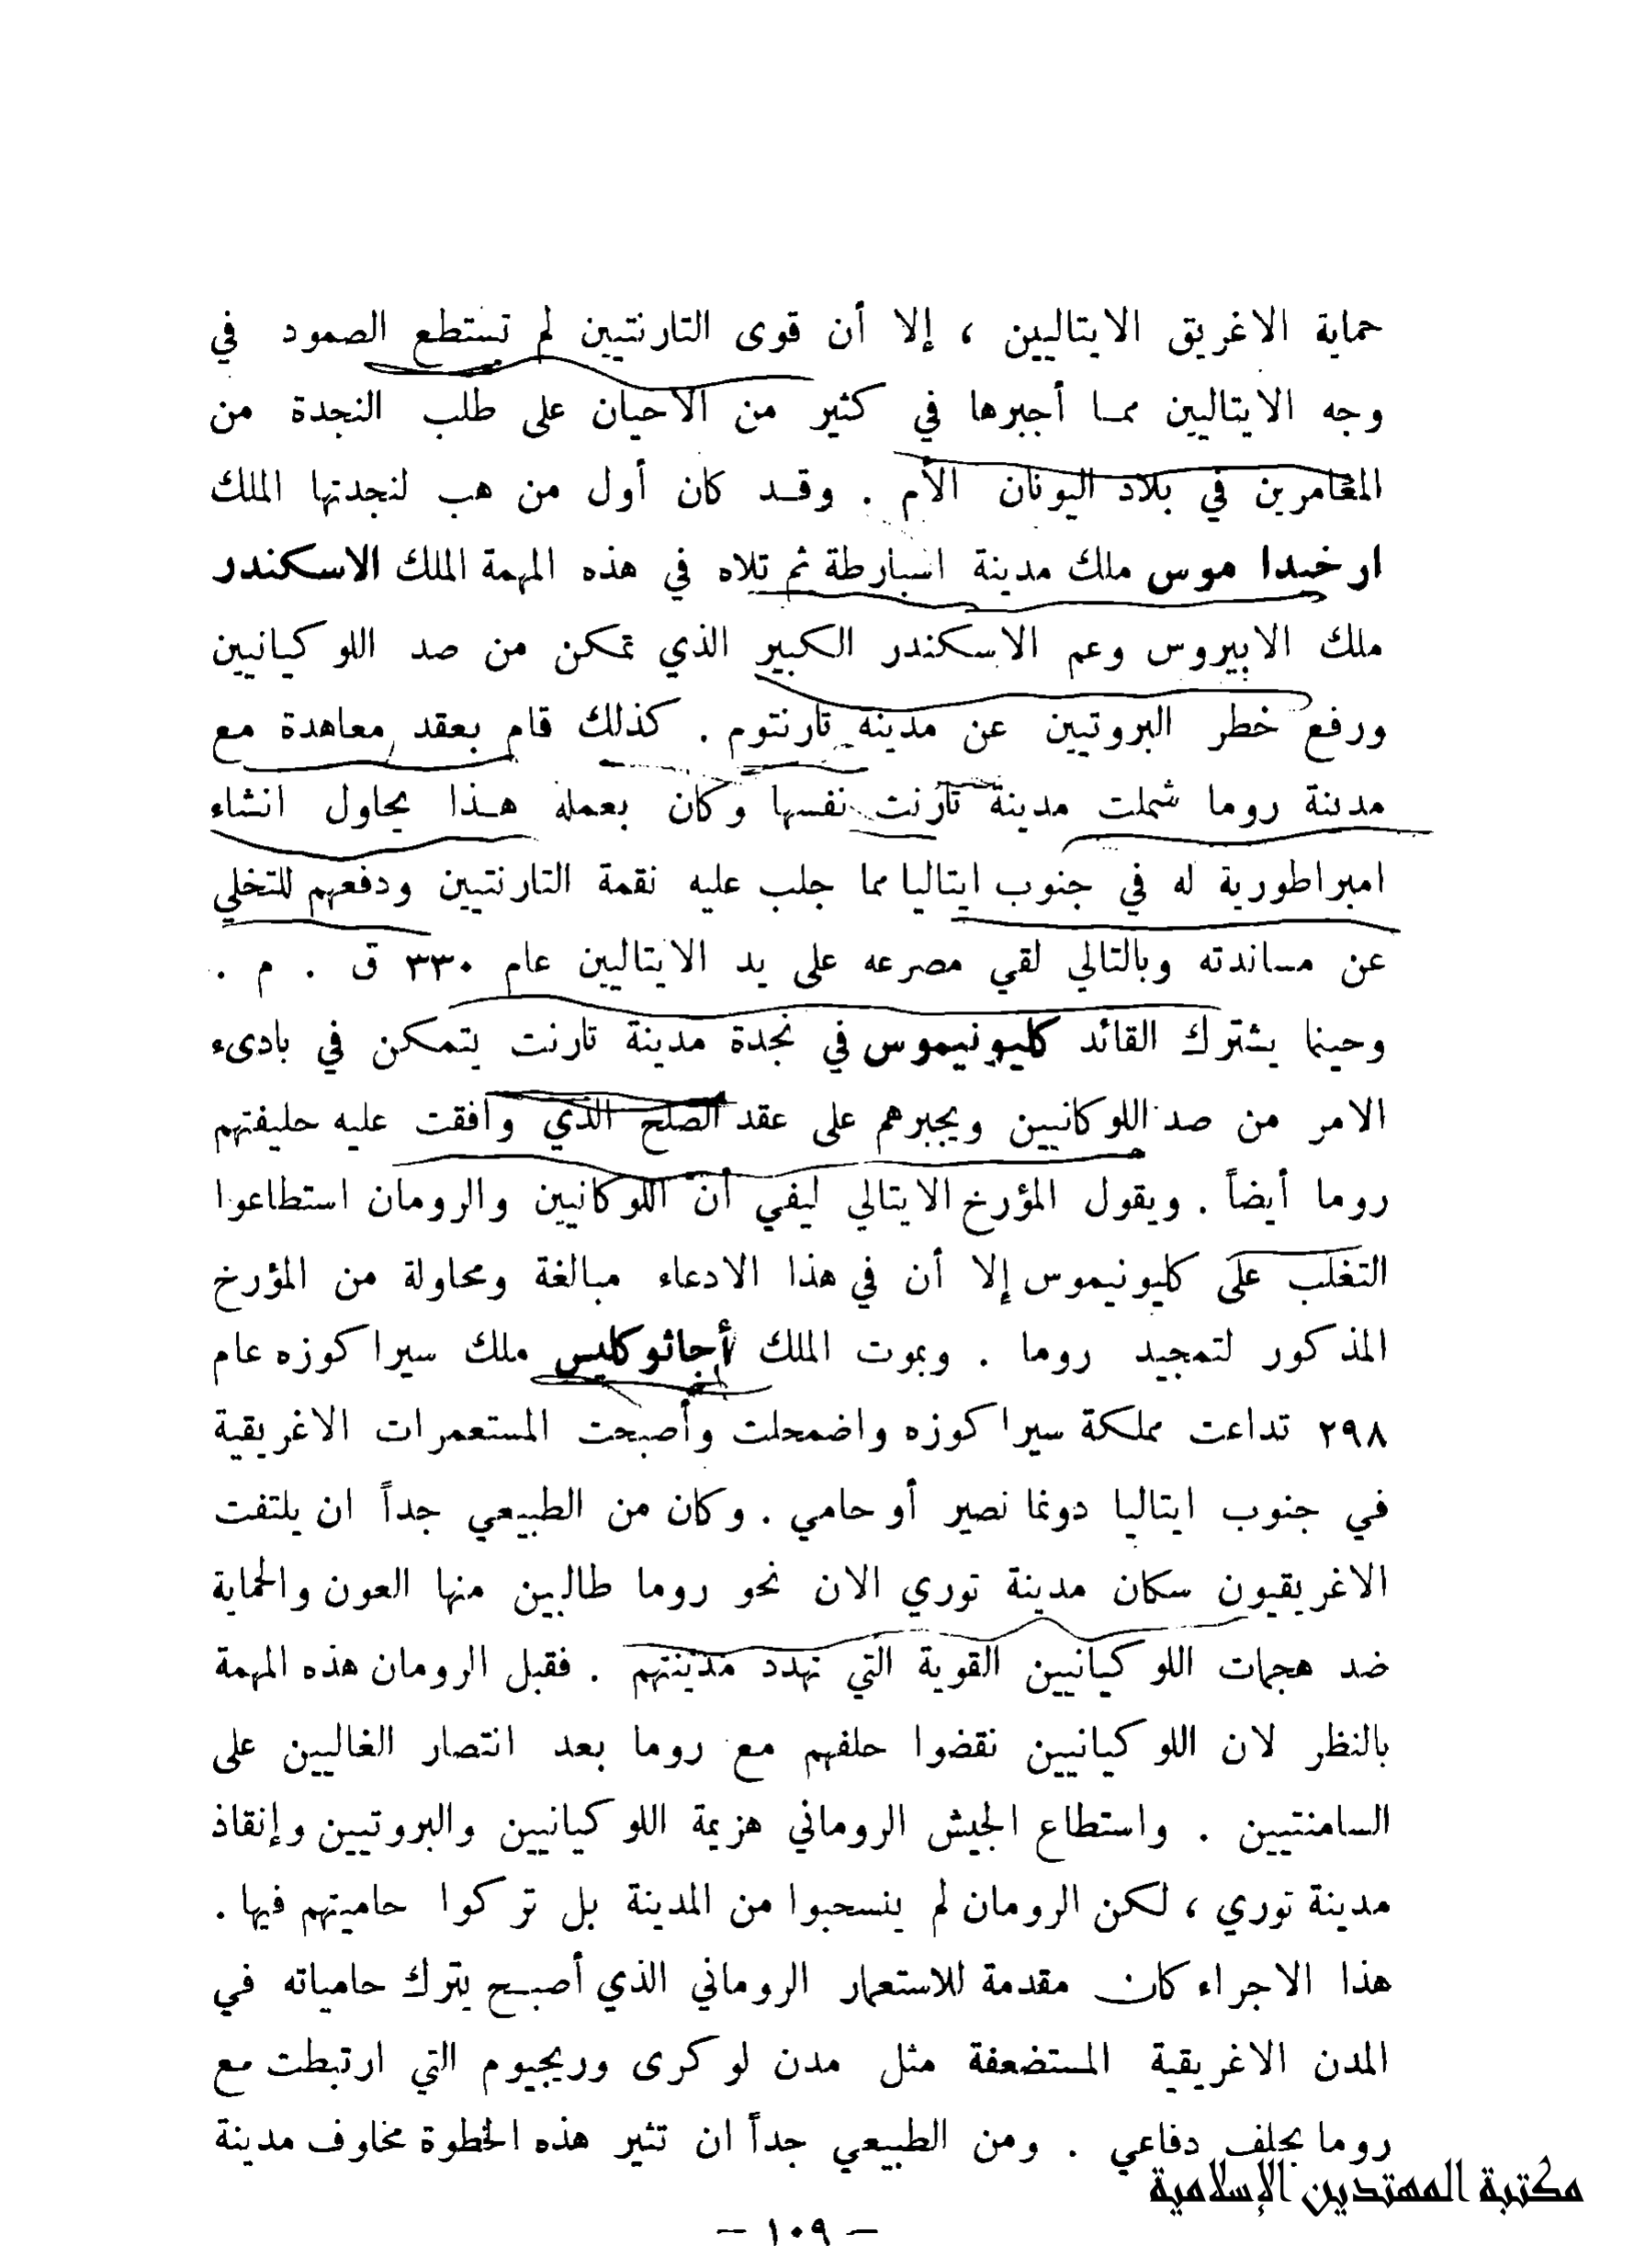 حماية الاغريق الايتاليين ، إلا أن قوى التارنتيين لم تستطع الصمود في
وجه الايتاليين ممـا أجبرها في كثير من الأحيان على طلب النجدة من
المغامرين في بلاد اليونان الأم . وقـد كان أول من هب لنجدتها الملك
ارخيدا موس ملك مدينة اسبارطة ثم تلاه في هذه المهمة الملك الاسكندر
ملك الابيروس وعم الاسكندر الكبير الذي تمكن من صد اللوكيانيين
ورفع خطر البروتيين عن مدينة تارنتوم . كذلك قام بعقد معاهدة مع
مدينة روما شملت مدينة تارنت نفسها وكان بعمله هـذا يحاول انشاء
امبراطورية له في جنوب ايتاليا مما جلب عليه نقمة التارنتيين ودفعهم للتخلي
عن مساندته وبالتالي لقي مصرعه على يد الايتاليين عام ٣٣٠ ق . م .
وحينما يشترك القائد كليونيموس في نجدة مدينة تارنت يتمكن في بادىء
الامر من صد اللوكانيين ويجبرهم على عقد الصلح الذي وافقت عليه حليفتهم
روما أيضاً . ويقول المؤرخ الايتالي ليفي أن اللوكانيين والرومان استطاعوا
التغلب على كليونيموس إلا أن في هذا الادعاء مبالغة ومحاولة من المؤرخ
المذكور لتمجيد روما . وبموت الملك أجاثوكليس ملك سيراكوزه عام
٢٩٨ تداعت مملكة سيراكوزه واضمحلت وأصبحت المستعمرات الاغريقية
في جنوب ايتاليا دونما نصير أو حامي . وكان من الطبيعي جداً ان يلتفت
الاغريقيون سكان مدينة توري الان نحو روما طالبين منها العون والحماية
ضد هجمات اللوكيانيين القوية التي تهدد مدينتهم . فقبل الرومان هذه المهمة
بالنظر لان اللوكيانيين نقضوا حلفهم مع روما بعد انتصار الغاليين على
السامنتيين . واستطاع الجيش الروماني هزيمة اللوكيانيين والبروتيين وإنقاذ
مدينة توري ، لكن الرومان لم ينسحبوا من المدينة بل تركوا حاميتهم فيها .
هذا الاجراء كان مقدمة للاستعمار الروماني الذي أصبـح يترك حامياته في
المدن الاغريقية المستضعفة مثل مدن لوكرى وريجيوم التي ارتبطت مع
روما بحلف دفاعي . ومن الطبيعي جداً ان تثير هذه الخطوة مخاوف مدينة
مكتبة المهتدين الإسلامية
— ١٠٩ —